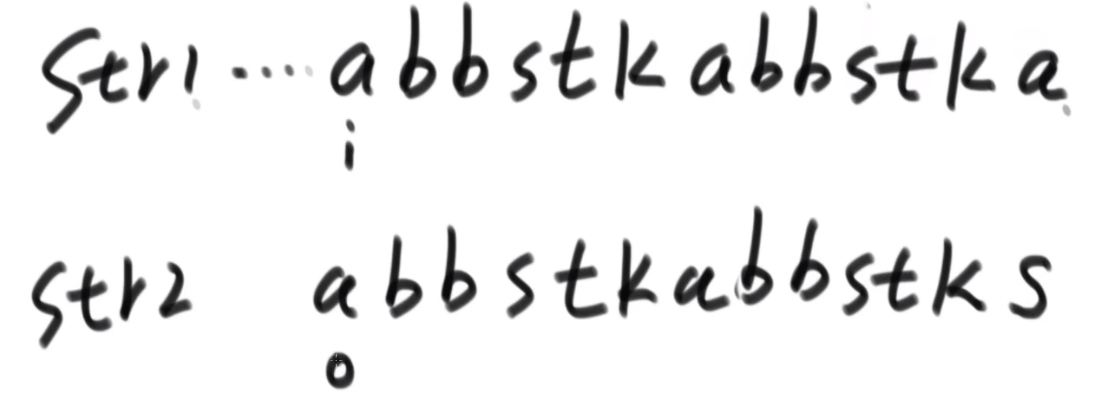 str1 .... abbstkabbstka
i
str2 abbstkabbstks
0